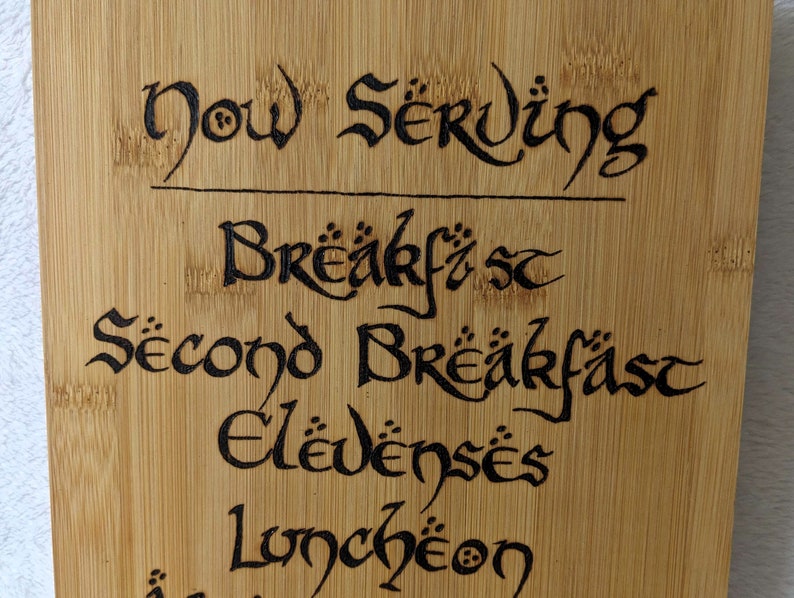 Now Serving
Breakfist
Second Breakfast
Elevenses
Luncheon